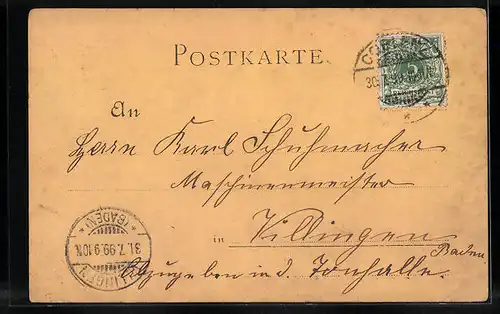 POSTKARTE.
COBLENZ
30.7.99
An
Herrn Karl Schuhmacher
Maschinenmeister
in Villingen
Baden
Abzugeben in d. Tonhalle.
VILLINGEN
31.7.99.9-10N.
*(BADEN)*